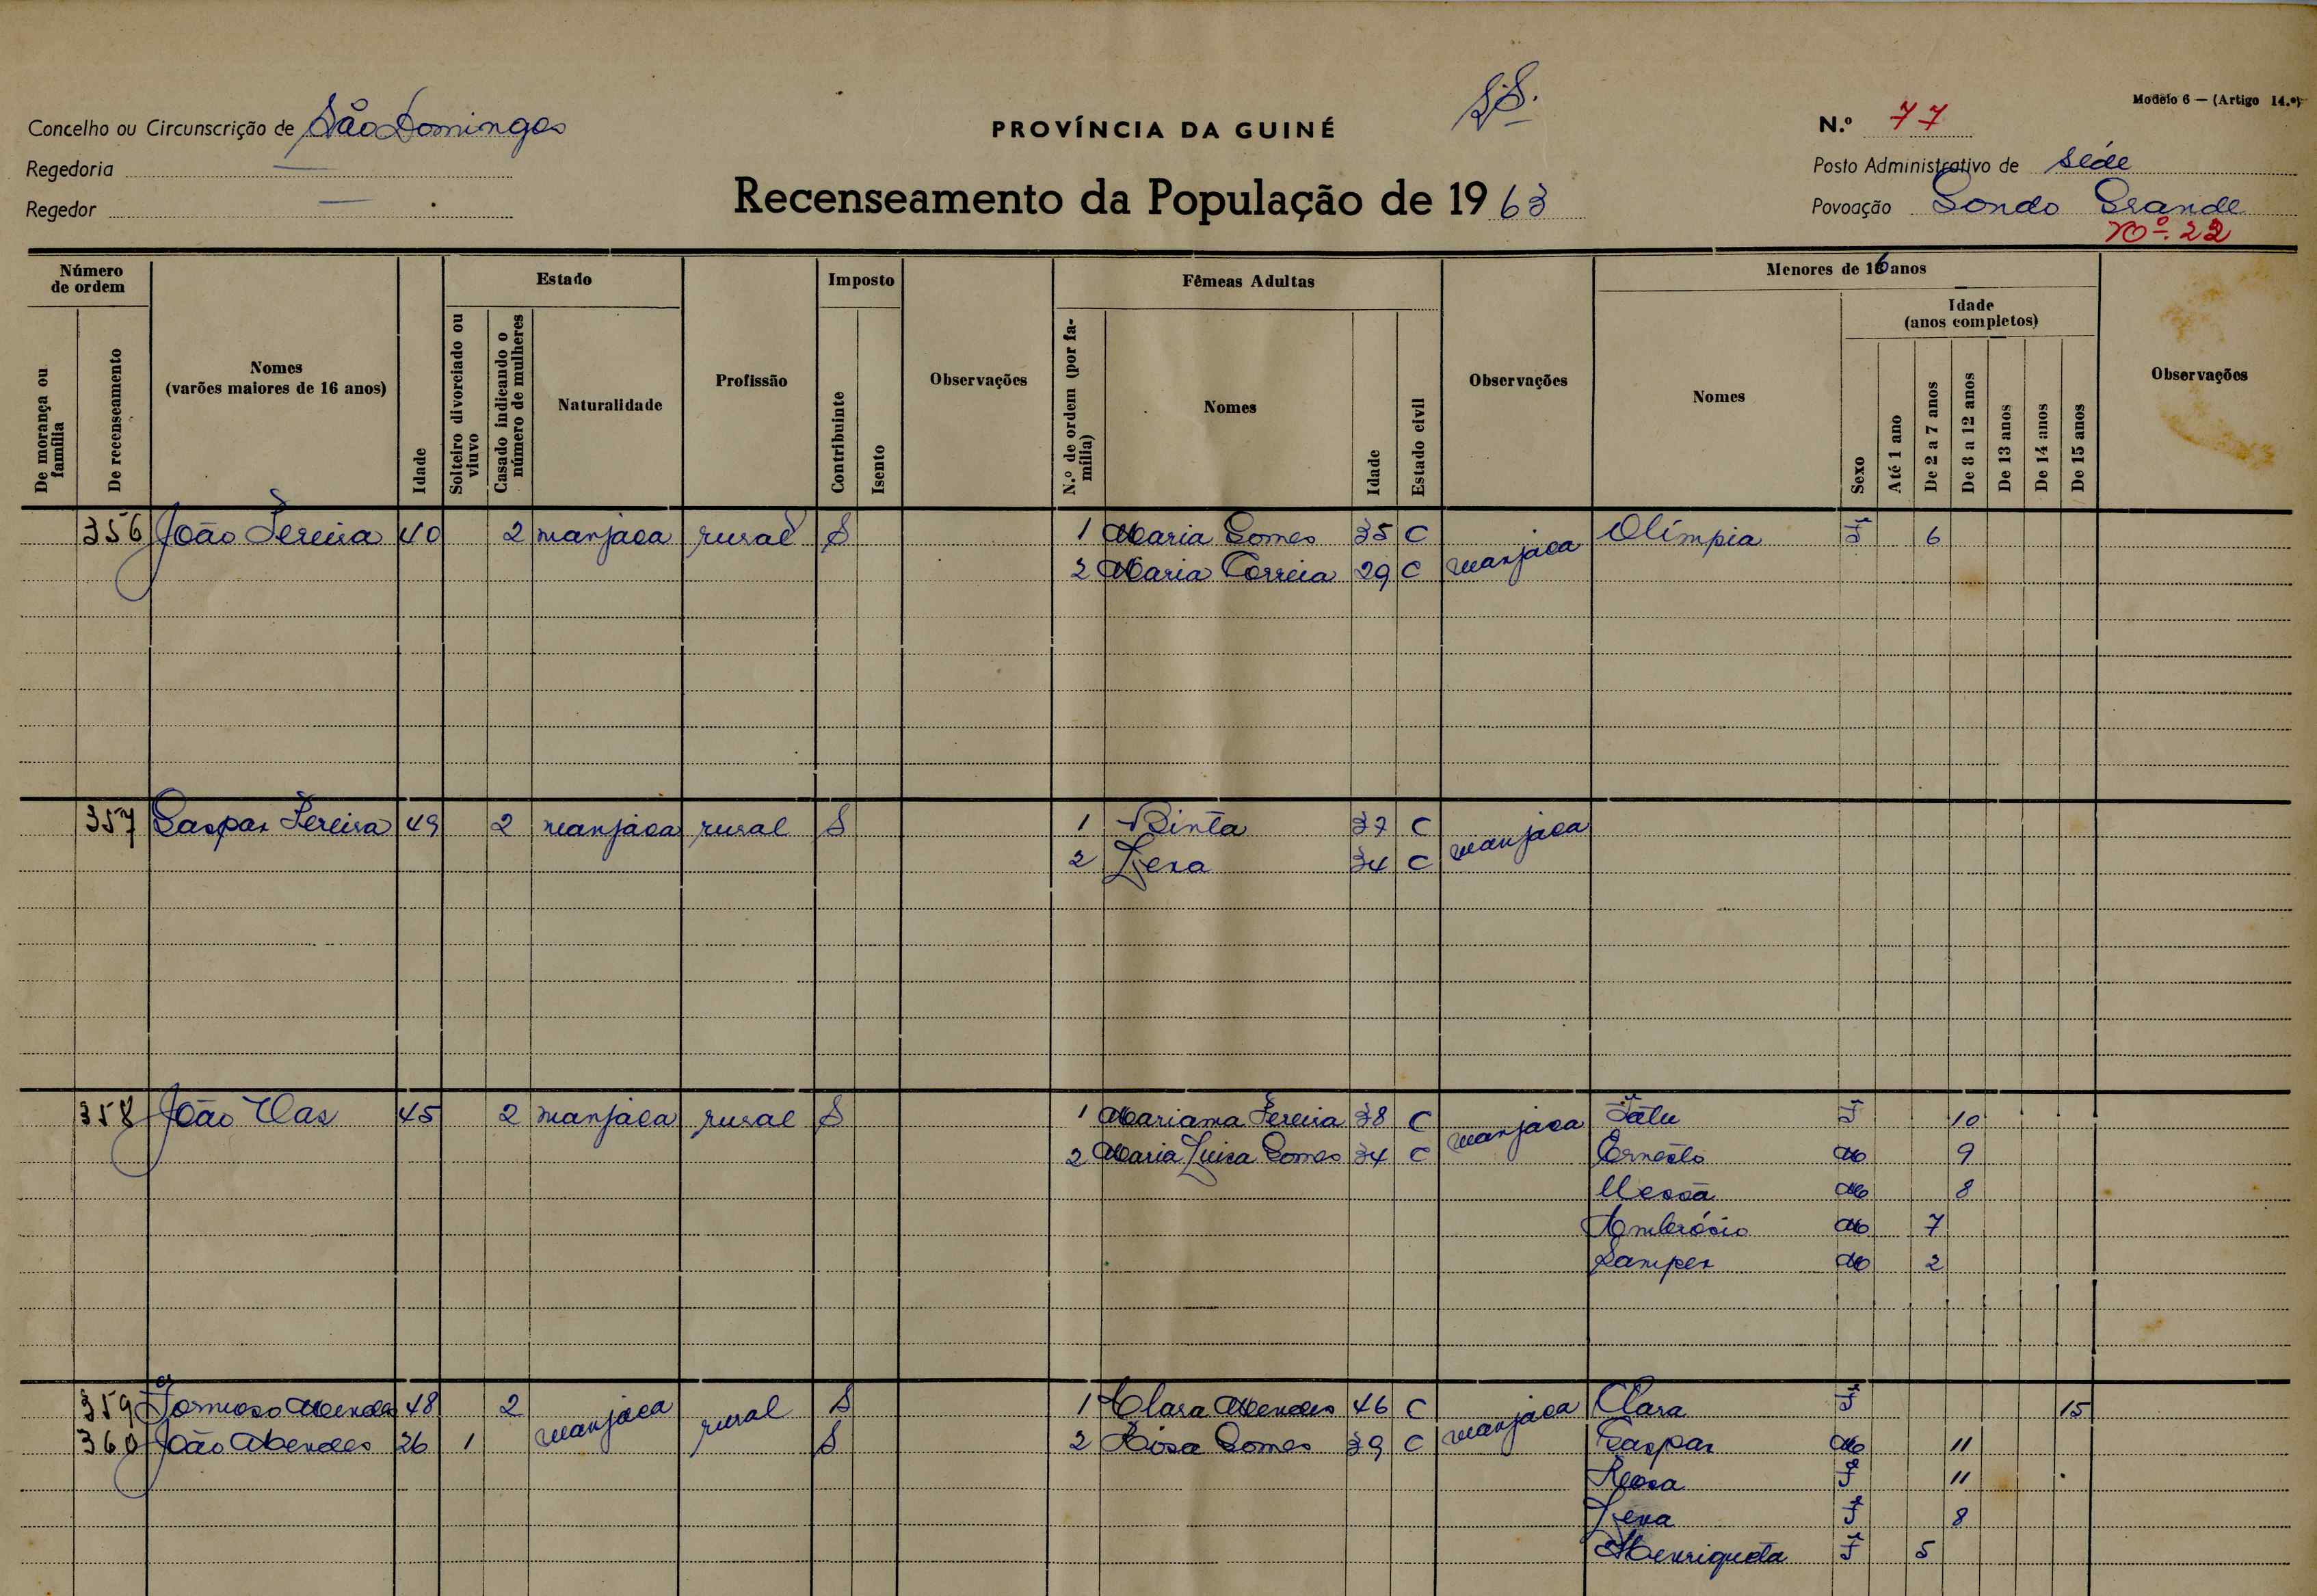 S.S.
Modelo 6 — (Artigo 14.º)
Concelho ou Circunscrição de São Domingos
PROVÍNCIA DA GUINÉ
N.º 77
Regedoria —
Posto Administrativo de Séde
Regedor —
Recenseamento da População de 1963
Povoação Sondo Grande
Nº. 22
Número de ordem
De morança ou família
De recenseamento
Nomes
(varões maiores de 16 anos)
Idade
Estado
Solteiro divorciado ou viuvo
Casado indicando o número de mulheres
Naturalidade
Profissão
Imposto
Contribuinte
Isento
Observações
Fêmeas Adultas
N.º de ordem (por família)
Nomes
Idade
Estado civil
Observações
Menores de 16 anos
Nomes
Sexo
Idade
(anos completos)
Até 1 ano
De 2 a 7 anos
De 8 a 12 anos
De 13 anos
De 14 anos
De 15 anos
Observações
356 João Pereira 40 2 manjaca rural S 1 Maria Gomes 35 C manjaca Olímpia F 6
2 Maria Correia 29 C
357 Gaspar Pereira 49 2 manjaca rural S 1 Binta 37 C manjaca
2 Lena 34 C
358 João Vaz 45 2 manjaca rural S 1 Mariama Pereira 38 C manjaca Fátu F 10
2 Maria Luisa Gomes 34 C Ernesto M 9
M 8
Ambrósio M 7
Samper M 2
359 Formoso Mendes 48 2 manjaca rural S 1 Clara Mendes 46 C manjaca Clara F 15
360 João Mendes 26 1 S 2 Rosa Gomes 39 C Gaspar M 11
Rosa F 11
Lena F 8
Henriqueta F 5